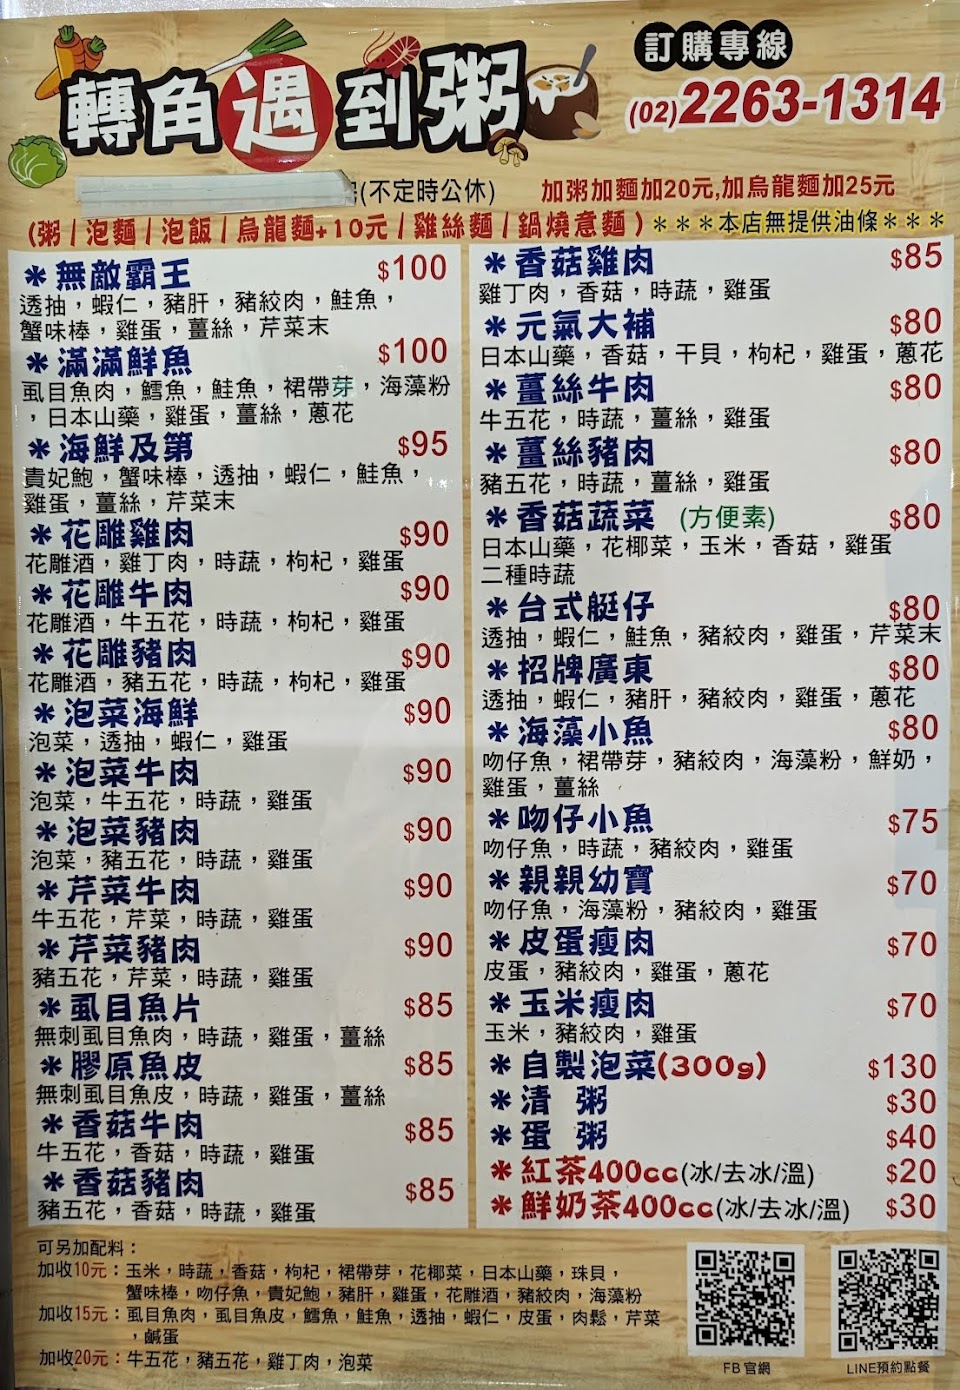 轉角遇到粥
訂購專線
(02)2263-1314
(不定時公休)
加粥加麵加20元,加烏龍麵加25元
(粥/泡麵/泡飯/烏龍麵+10元/雞絲麵/鍋燒意麵)***本店無提供油條***
*無敵霸王 $100
透抽，蝦仁，豬肝，豬絞肉，鮭魚，
蟹味棒，雞蛋，薑絲，芹菜末
*滿滿鮮魚 $100
虱目魚肉，鱈魚，鮭魚，裙帶芽，海藻粉
，日本山藥，雞蛋，薑絲，蔥花
*海鮮及第 $95
貴妃鮑，蟹味棒，透抽，蝦仁，鮭魚，
雞蛋，薑絲，芹菜末
*花雕雞肉 $90
花雕酒，雞丁肉，時蔬，枸杞，雞蛋
*花雕牛肉 $90
花雕酒，牛五花，時蔬，枸杞，雞蛋
*花雕豬肉 $90
花雕酒，豬五花，時蔬，枸杞，雞蛋
*泡菜海鮮 $90
泡菜，透抽，蝦仁，雞蛋
*泡菜牛肉 $90
泡菜，牛五花，時蔬，雞蛋
*泡菜豬肉 $90
泡菜，豬五花，時蔬，雞蛋
*芹菜牛肉 $90
牛五花，芹菜，時蔬，雞蛋
*芹菜豬肉 $90
豬五花，芹菜，時蔬，雞蛋
*虱目魚片 $85
無刺虱目魚肉，時蔬，雞蛋，薑絲
*膠原魚皮 $85
無刺虱目魚皮，時蔬，雞蛋，薑絲
*香菇牛肉 $85
牛五花，香菇，時蔬，雞蛋
*香菇豬肉 $85
豬五花，香菇，時蔬，雞蛋
*香菇雞肉 $85
雞丁肉，香菇，時蔬，雞蛋
*元氣大補 $80
日本山藥，香菇，干貝，枸杞，雞蛋，蔥花
*薑絲牛肉 $80
牛五花，時蔬，薑絲，雞蛋
*薑絲豬肉 $80
豬五花，時蔬，薑絲，雞蛋
*香菇蔬菜 (方便素) $80
日本山藥，花椰菜，玉米，香菇，雞蛋
二種時蔬
*台式艇仔 $80
透抽，蝦仁，鮭魚，豬絞肉，雞蛋，芹菜末
*招牌廣東 $80
透抽，蝦仁，豬肝，豬絞肉，雞蛋，蔥花
*海藻小魚 $80
吻仔魚，裙帶芽，豬絞肉，海藻粉，鮮奶，
雞蛋，薑絲
*吻仔小魚 $75
吻仔魚，時蔬，豬絞肉，雞蛋
*親親幼寶 $70
吻仔魚，海藻粉，豬絞肉，雞蛋
*皮蛋瘦肉 $70
皮蛋，豬絞肉，雞蛋，蔥花
*玉米瘦肉 $70
玉米，豬絞肉，雞蛋
*自製泡菜(300g) $130
*清 粥 $30
*蛋 粥 $40
*紅茶400cc(冰/去冰/溫) $20
*鮮奶茶400cc(冰/去冰/溫) $30
可另加配料：
加收10元：玉米，時蔬，香菇，枸杞，裙帶芽，花椰菜，日本山藥，珠貝，
蟹味棒，吻仔魚，貴妃鮑，豬肝，雞蛋，花雕酒，豬絞肉，海藻粉
加收15元：虱目魚肉，虱目魚皮，鱈魚，鮭魚，透抽，蝦仁，皮蛋，肉鬆，芹菜
，鹹蛋
加收20元：牛五花，豬五花，雞丁肉，泡菜
FB官網
LINE預約點餐